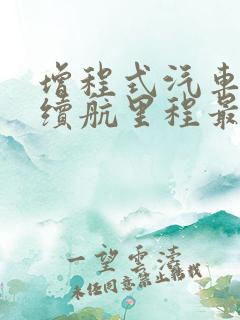 增程式汽车
续航里程最
一望云涛
未经同意禁止转载